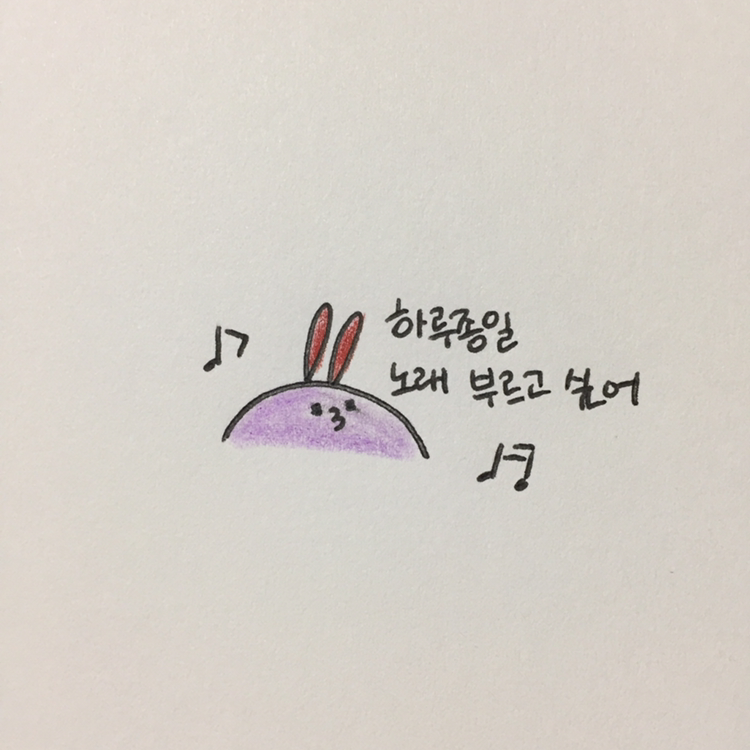 하루종일
노래 부르고 싶어